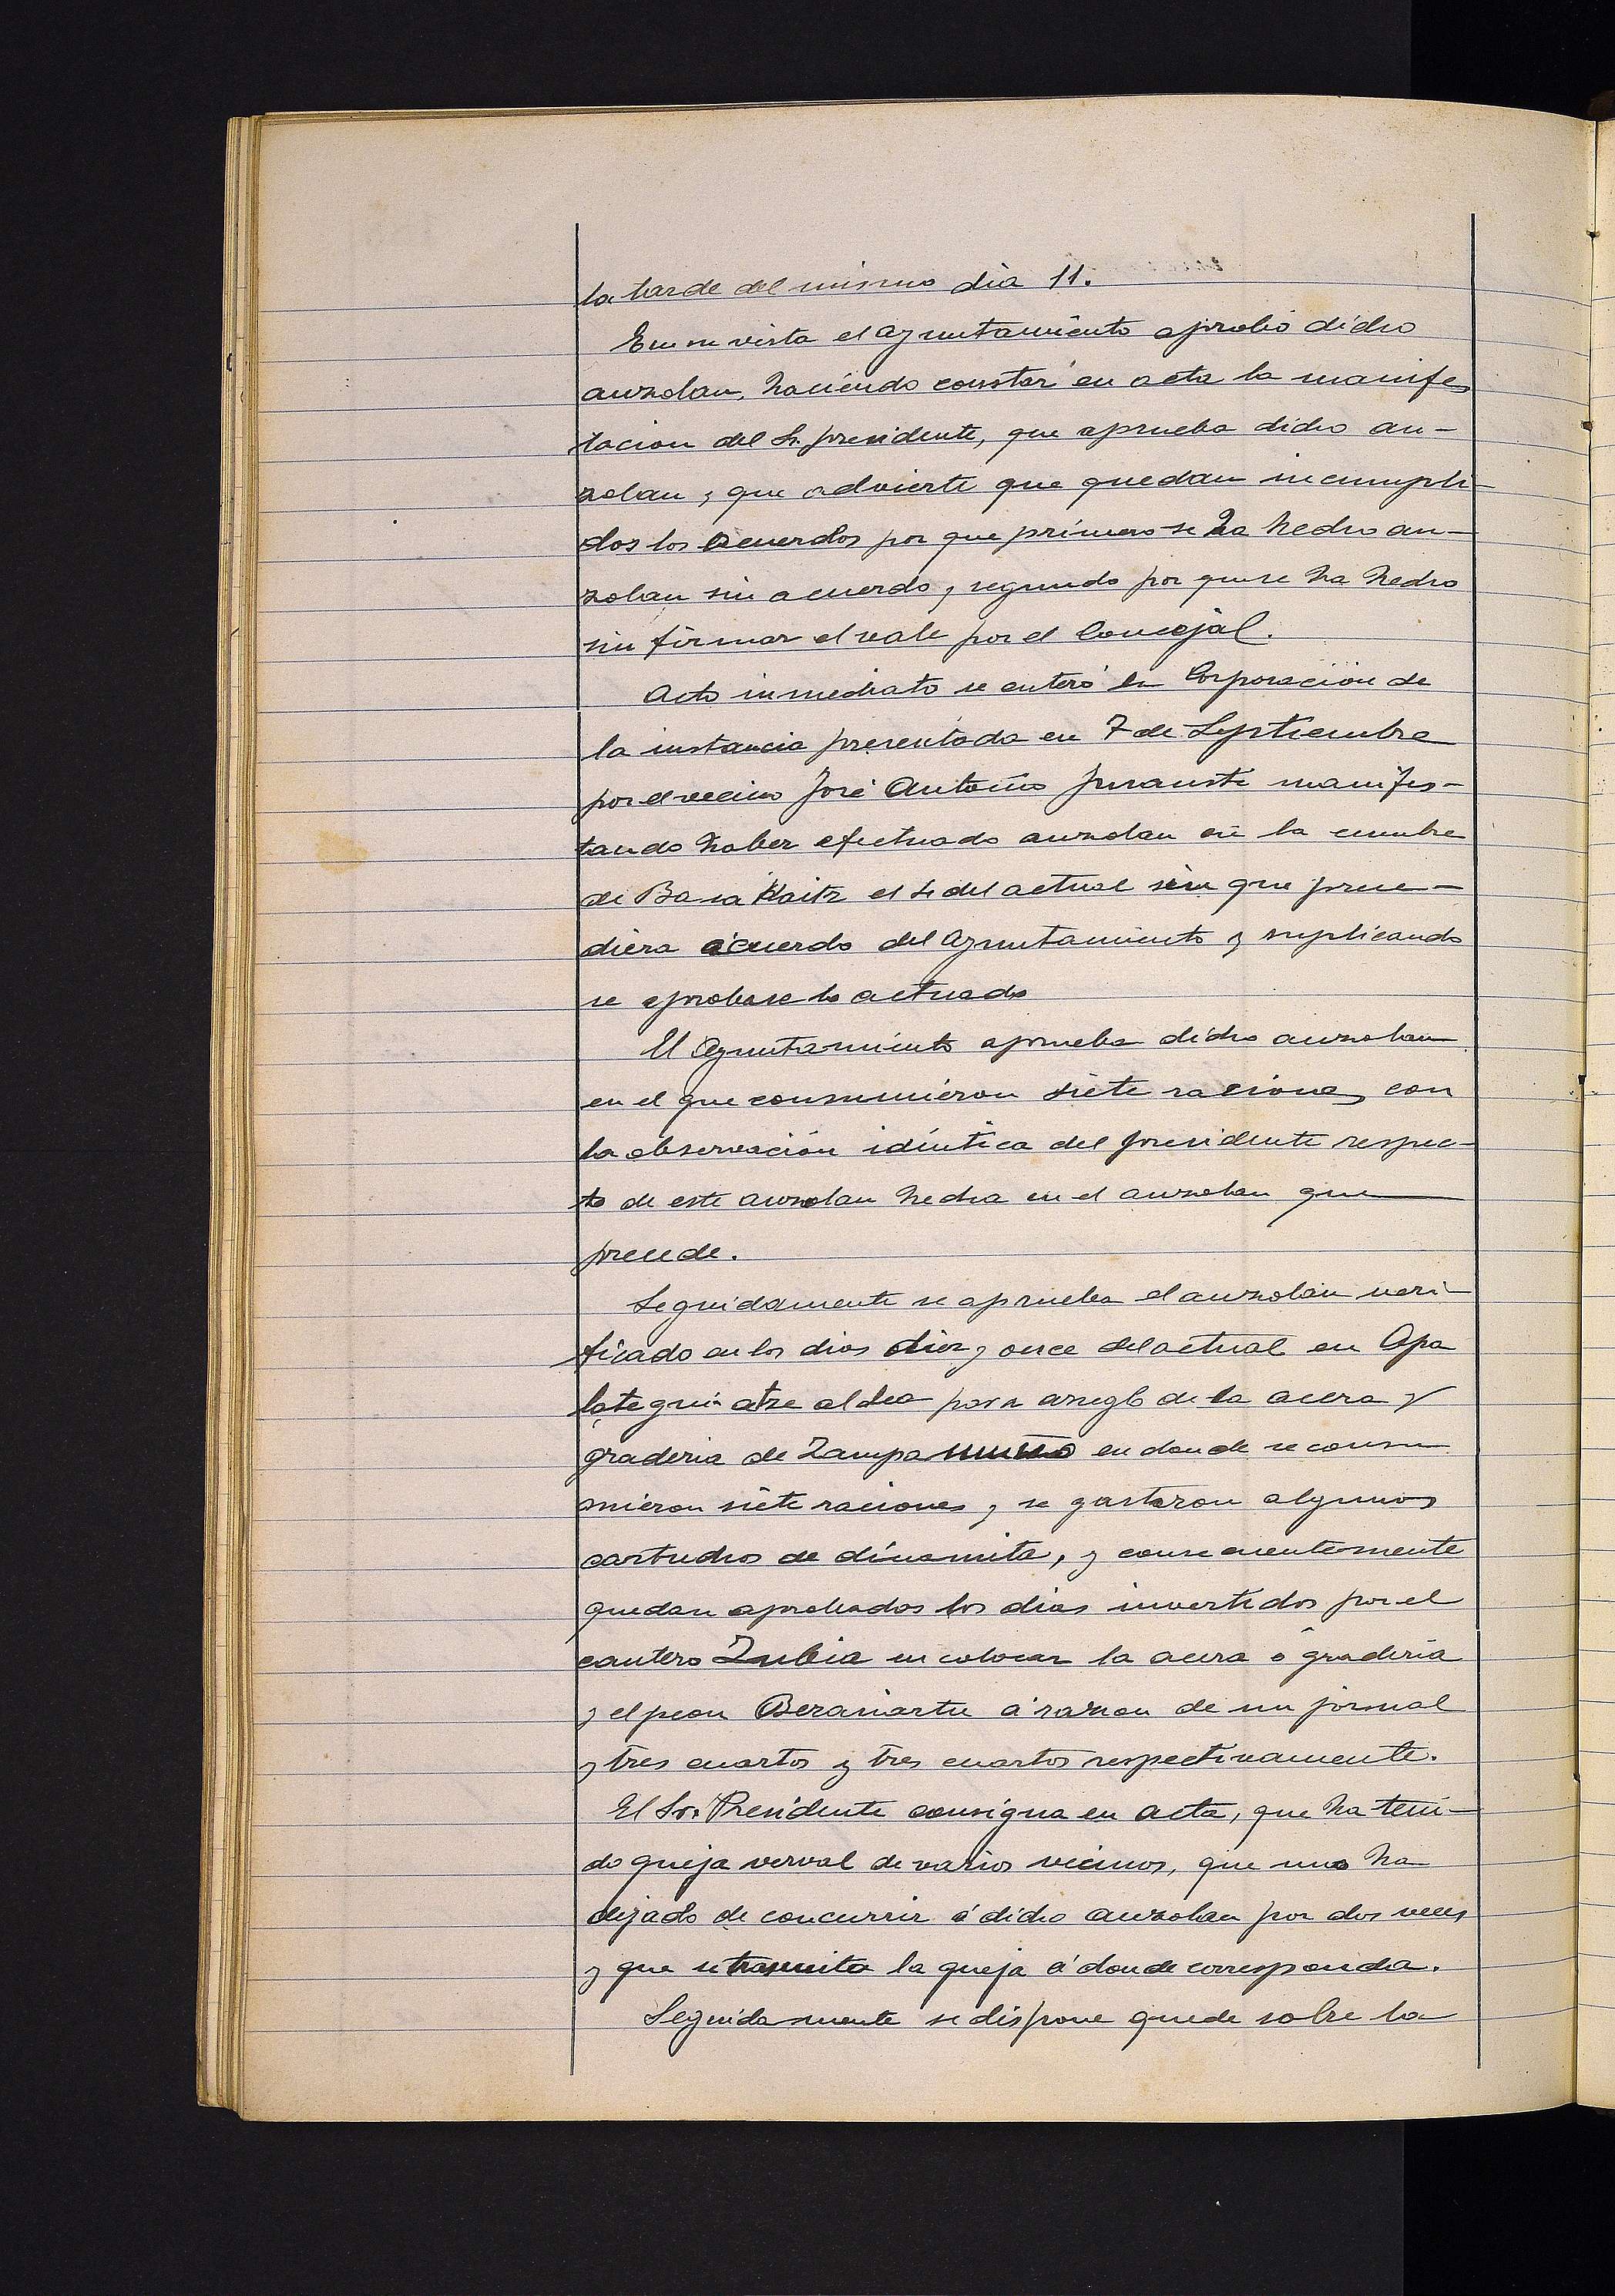 la tarde del mismo dia 11.
En su vista el Ayuntamiento aprobó dicho
auzolan, haciendo constar en acta la manifes
tacion del Sr. presidente, que aprueba dicho au-
zolan y que advierte que quedan incumpli-
dos los acuerdos por que primero se ha hecho au-
zolan sin acuerdo, y segundo por que se ha hecho
sin firmar el vale por el Concejal.
Acto inmediato se enteró la Corporación de
la instancia presentada en 7 de Septiembre
por el vecino José Antonio manifes-
tando haber efectuado auzolan en la cumbre
de Basa Haitz el 4 del actual sin que prece-
diera acuerdo del Ayuntamiento y suplicando
se aprobase lo actuado
El Ayuntamiento aprueba dicho auzolan
en el que consumieron siete raciones con
la observación idéntica del presidente respec-
to de este auzolan hecha en el auzolan que
precede.
Seguidamente se aprueba el auzolan veri-
ficado en los dias diez y once del actual en Apa
lategui atze aldea para arreglo de la acera y
graderia de Zampa en donde se consu
mieron siete raciones y se gastaron algunos
cartuchos de dinamita, y consecuentemente
quedan aprobados los dias invertidos por el
cantero Zubia en colocar la acera ó graderia
y el peon Berasiartu á razon de un jornal
y tres cuartos y tres cuartos respectivamente.
El Sr. Presidente consigna en acta, que ha teni-
do queja verval de varios vecinos, que uno ha
dejado de concurrir á dicho auzolan por dos veces
y que se trasmita la queja á donde corresponda.
Seguidamente se dispone quede sobre la